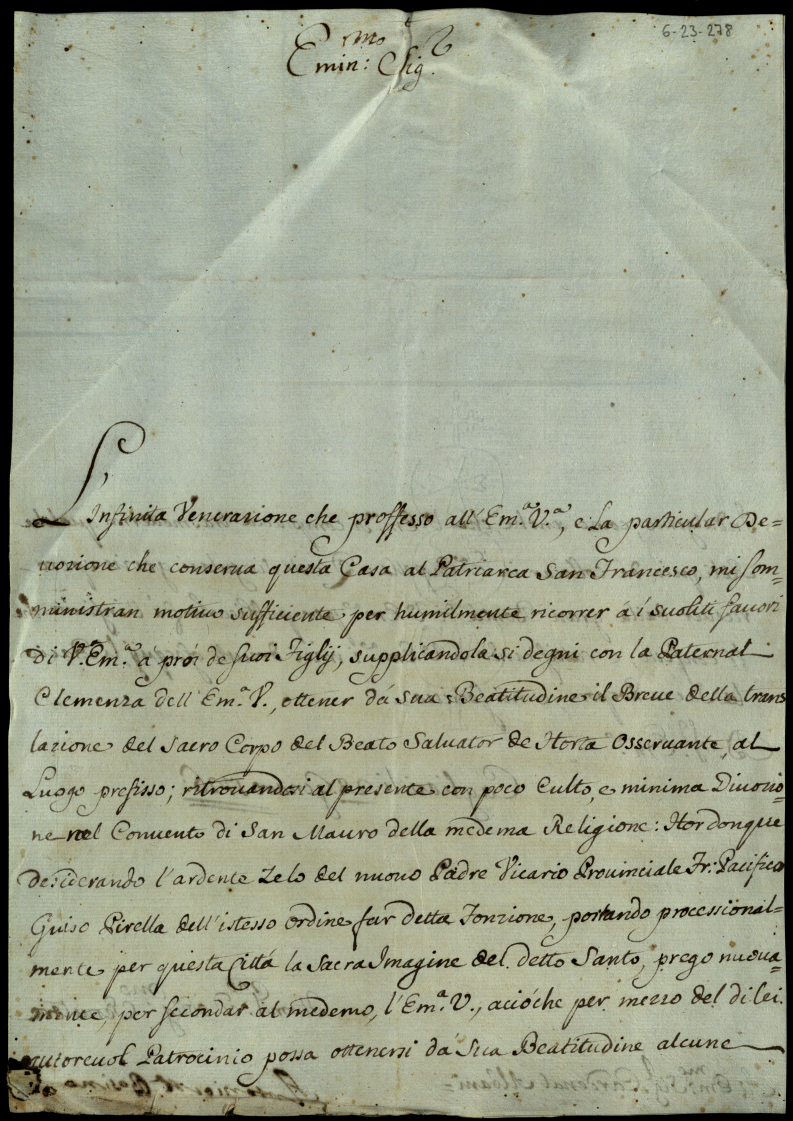 6-23-278
Emin:mo Sigr
L'Infinita Venerazione che proffesso all'Em.a V.a, e la particular De=
uozione che conserua questa Casa al Patriarca San Francesco, mi som=
ministran motiuo sufficiente per humilmente ricorrer á i suoliti fauori
di V.Em.a a' proi de suoi Figlij, supplicandola si degni con la Paternal
Clemenza dell'Em.a V., ottener dá sua Beatitudine il Breue della trans
lazione del Sacro Corpo del Beato Saluator de Horta Osseruante, al
Luogo prefisso; ritrouandosi al presente con poco Culto, e minima Diuozio=
ne nel Conuento di San Mauro della medema Religione: Hor donque
desiderando l'ardente Zelo del nuouo Padre Vicario Prouinciale Fr: Pacifico
Guiso Pirella dell'istesso ordine far detta Fonzione, portando processional=
mente per questa Cittá la Sacra Imagine del detto Santo, prego nuoua=
mente, per secondar al medemo, l'Em.a V., acióche per mezzo del di lei
autoreuol Patrocinio possa ottenersi dá Sua Beatitudine alcune